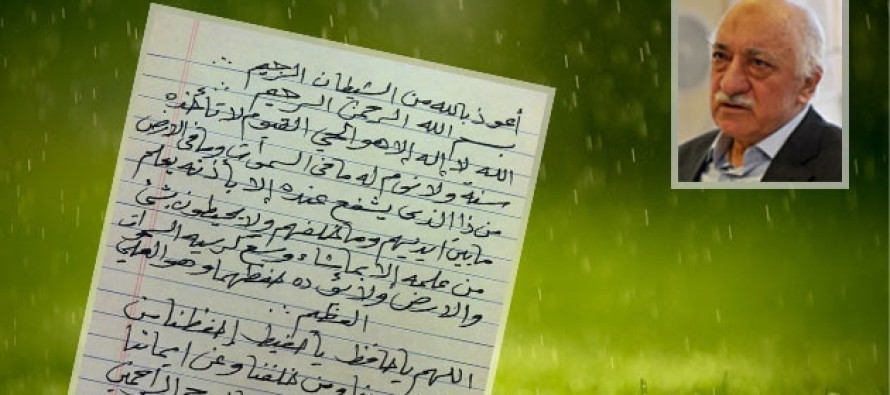 أعوذ بالله من الشيطان الرجيم
بسم الله الرحمن الرحيم
الله لا إله إلا هو الحي القيوم لا تأخذه
سنة ولا نوم له ما في السموات وما في الارض
من ذا الذي يشفع عنده إلا بأذنه يعلم
ما بين ايديهم وما خلفهم ولا يحيطون بشئ
من علمه إلا بما شاء وسع كرسيه السموات
والارض ولا يؤده حفظهما وهو العلي
العظيم
اللهم يا حافظ يا حفيظ إحفظنا من
ومن خلفنا وعن ايماننا